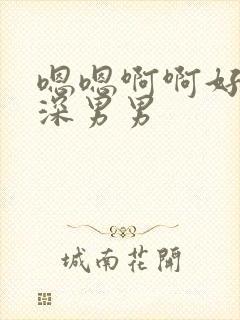 嗯嗯啊啊好
深男男
城南花開